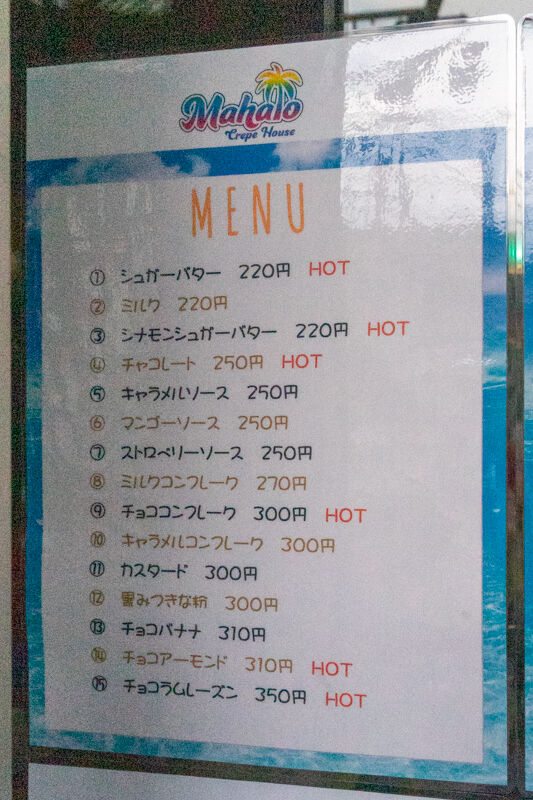 Mahalo
Crepe House
MENU
① シュガーバター 220円 HOT
② ミルク 220円
③ シナモンシュガーバター 220円 HOT
④ チャコレート 250円 HOT
⑤ キャラメルソース 250円
⑥ マンゴーソース 250円
⑦ ストロベリーソース 250円
⑧ ミルクコンフレーク 270円
⑨ チョココンフレーク 300円 HOT
⑩ キャラメルコンフレーク 300円
⑪ カスタード 300円
⑫ 黒みつきな粉 300円
⑬ チョコバナナ 310円
⑭ チョコアーモンド 310円 HOT
⑮ チョコラムレーズン 350円 HOT